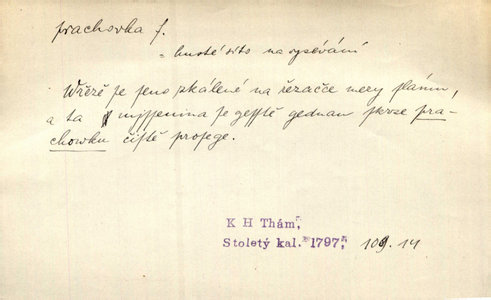 prachovka f.
= husté síto na vysévání
Wězě še seno skálené na řezačce mezy slámu,
a ta mjssenina se gesstě gednau skrze pra-
chowku čistě prosege.
K H Thám,
Stoletý kal. 1797, 109.14